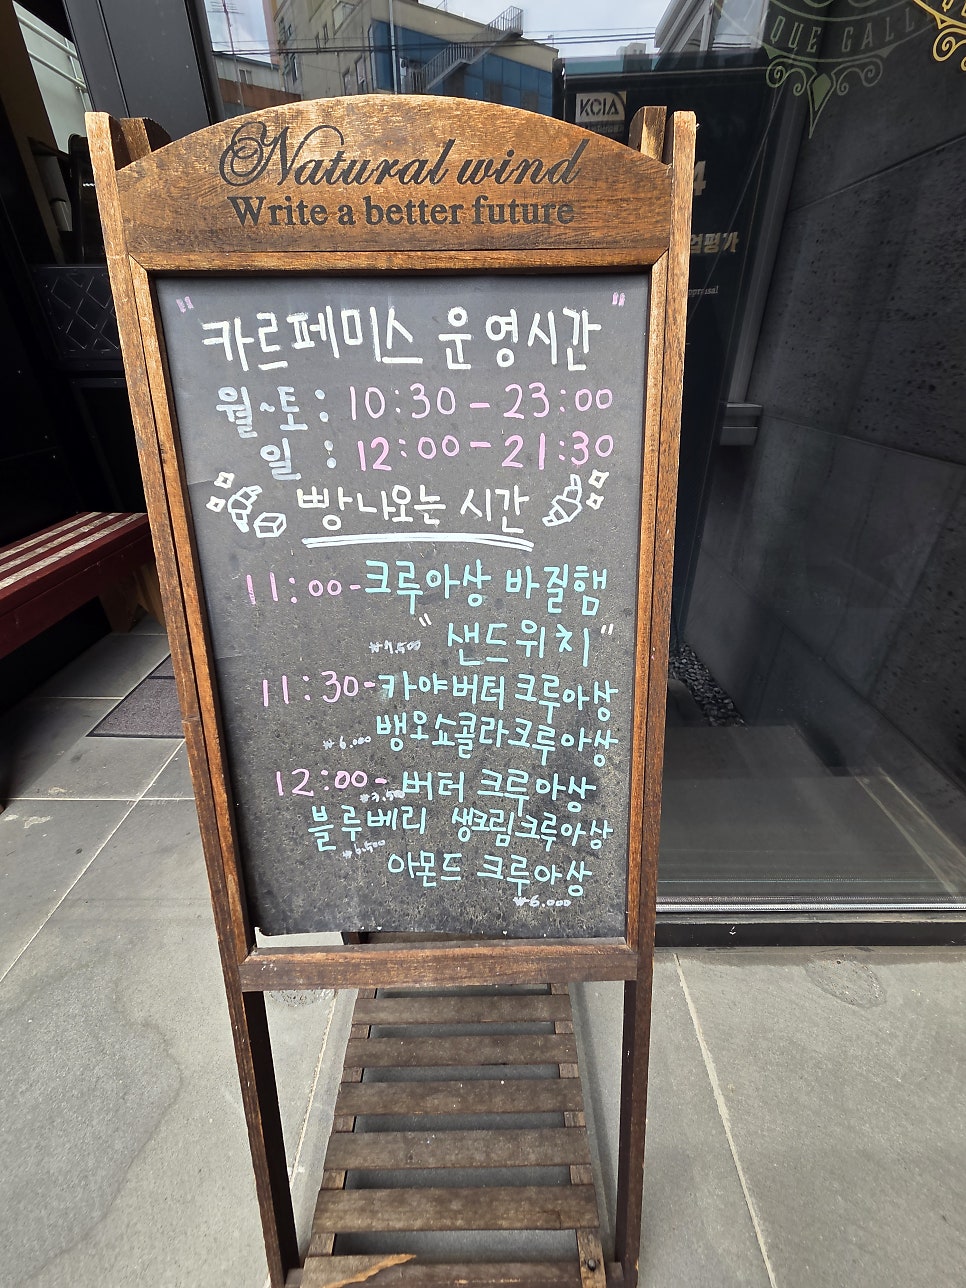 QUE GALL
KCIA
Natural wind
Write a better future
4
업평가
"카르페미스 운영시간"
월~토 : 10:30 - 23:00
일 : 12:00 - 21:30
빵 나오는 시간
11:00 - 크루아상 바질햄
₩7,500 "샌드위치"
11:30 - 카야버터 크루아상
₩6,000 뱅오쇼콜라크루아상
12:00 - 버터 크루아상
블루베리 생크림크루아상
아몬드 크루아상
₩6,000